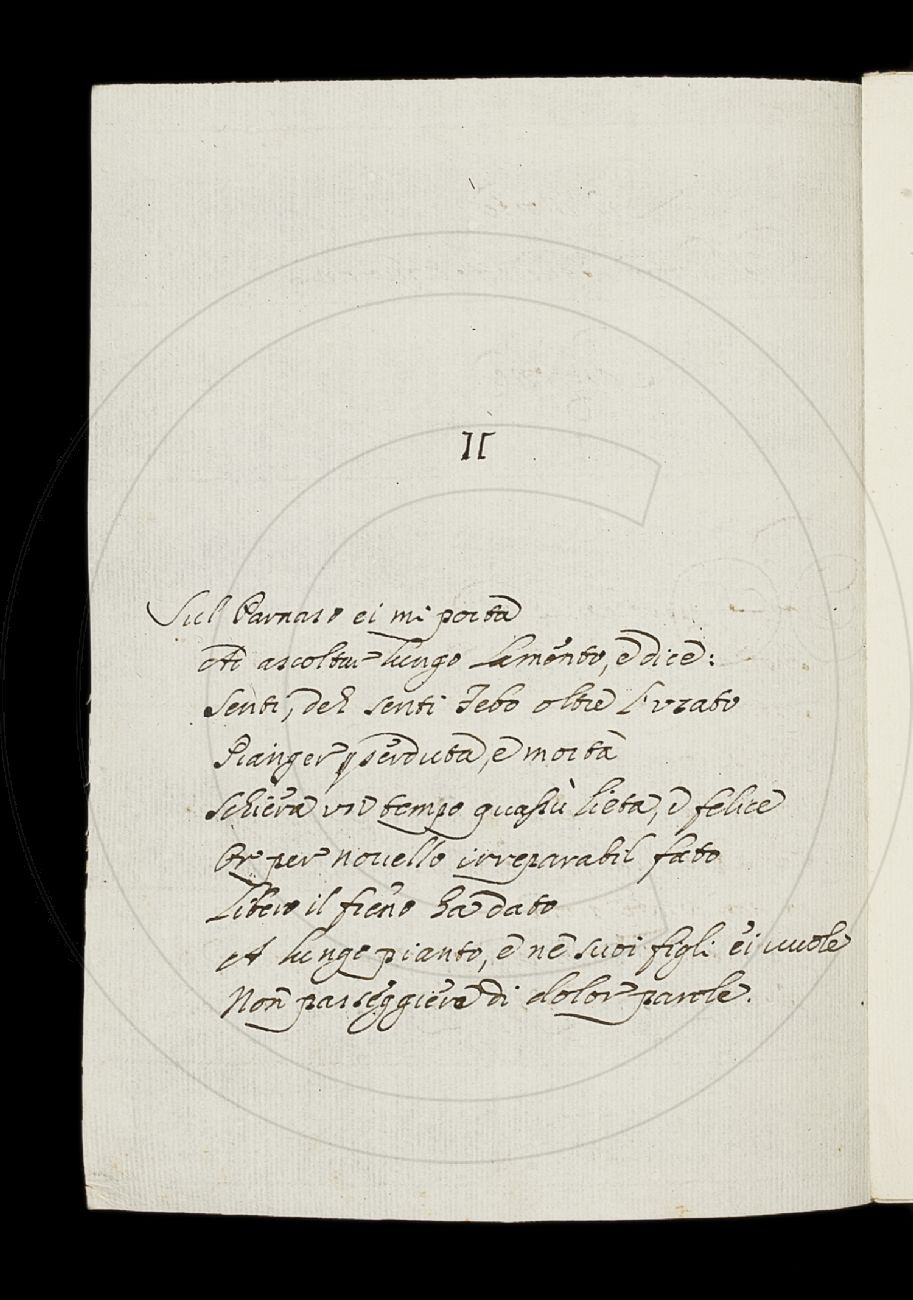 II
Sul Parnaso ei mi porta
Ad ascoltar lungo lamento, e dice:
Senti, deh senti Febo oltre l'usato
Pianger perduta, e morta
Schiera un tempo quassù lieta, e felice
Or per nouello irreparabil fato
Libero il freno ha dato
A lungo pianto, e ne suoi figli ei uuole
Non passeggiera di dolor parole.